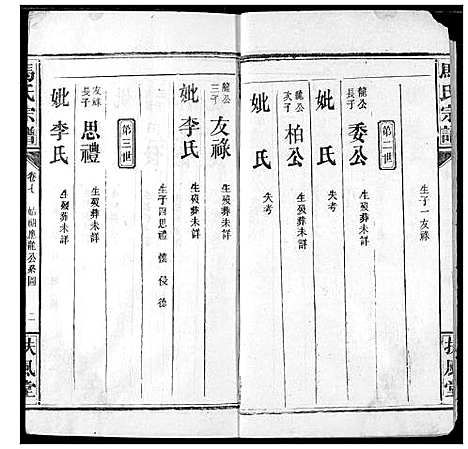 馬氏宗譜
扶風堂
生子一友祿
第二世
龍公長子
委公
生歿葬未詳
妣 氏
失考
龍公次子
柏公
生歿葬未詳
妣 氏
失考
龍公三子
友祿
生歿葬未詳
妣李氏
生子四思禮
第三世
友祿長子
思禮
生歿葬未詳
妣李氏
生歿葬未詳
馬氏宗譜
卷七
龍公系圖
二
扶風堂